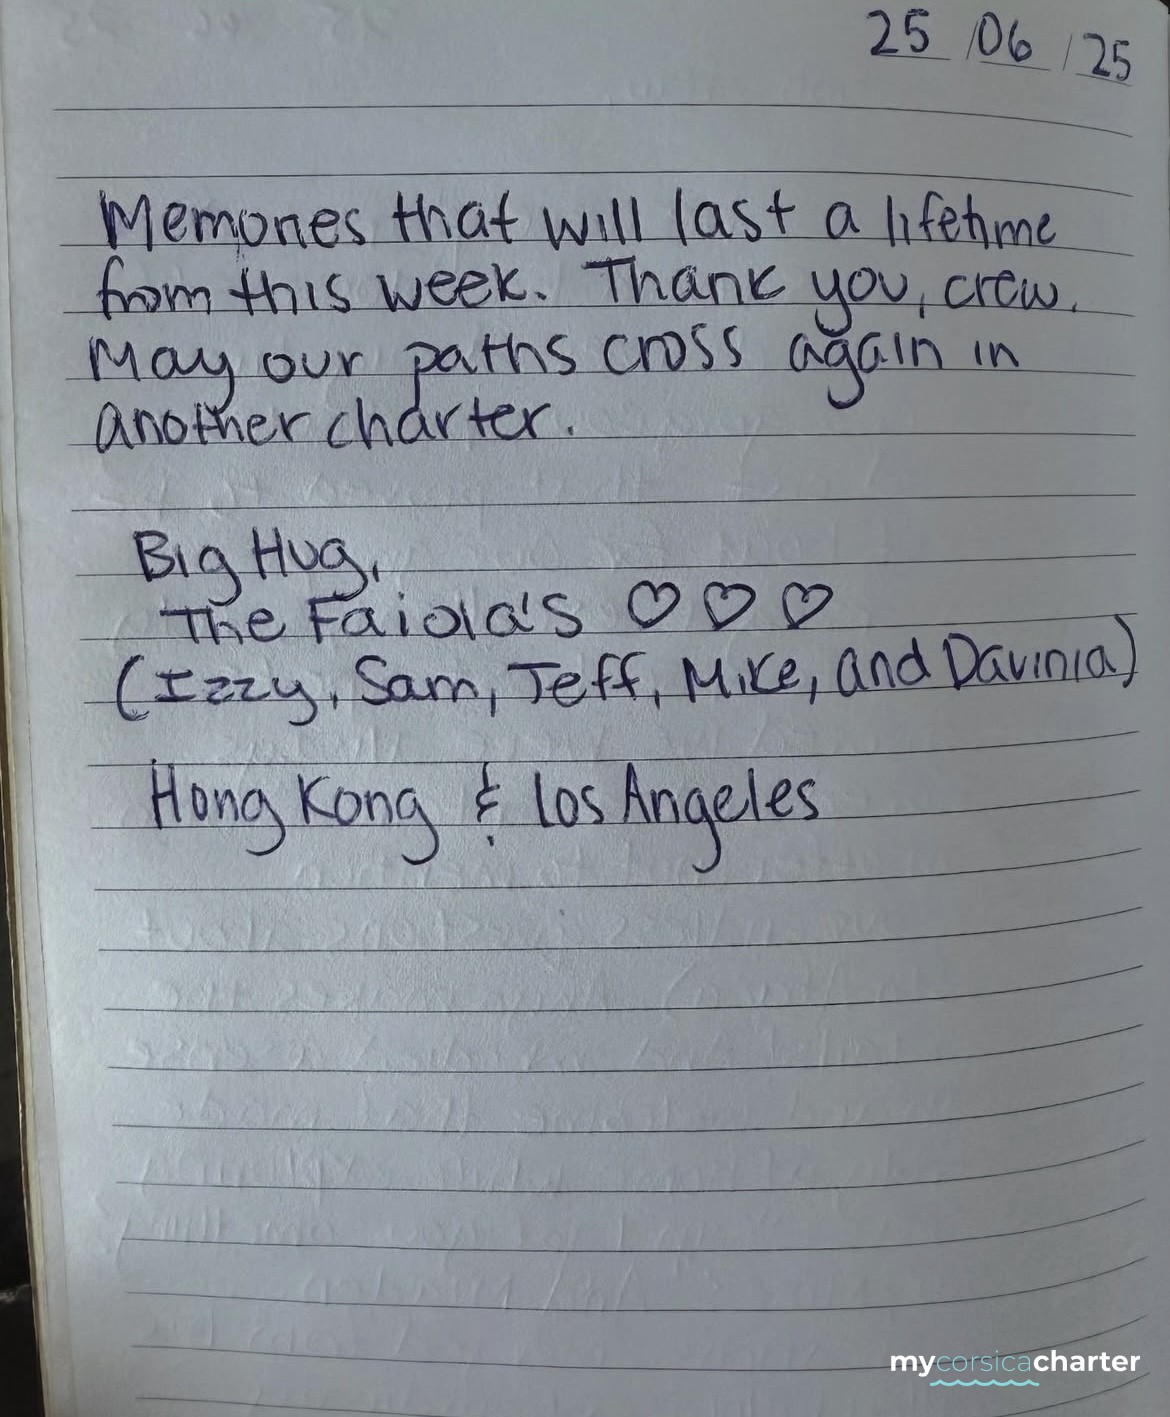 25/06/25
Memories that will last a lifetime
from this week. Thank you, crew.
May our paths cross again in
another charter.
Big Hug,
The Faiola's ♡ ♡ ♡
(Izzy, Sam, Jeff, Mike, and Davinia)
Hong Kong & Los Angeles
mycorsicacharter